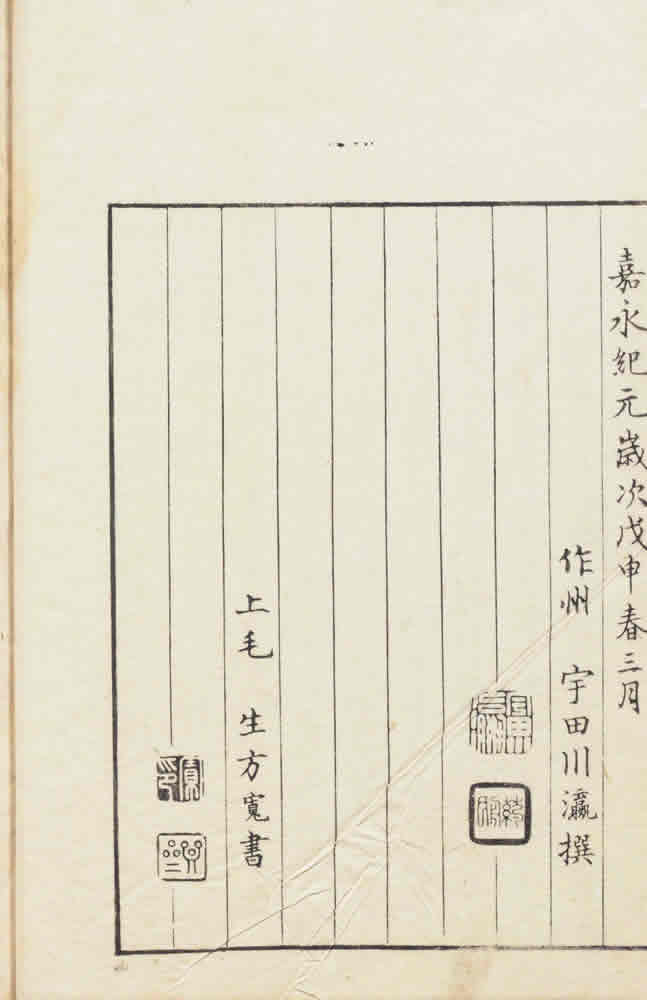 嘉永紀元歳次戊申春三月
作州 宇田川瀛撰
上毛 生方寛書